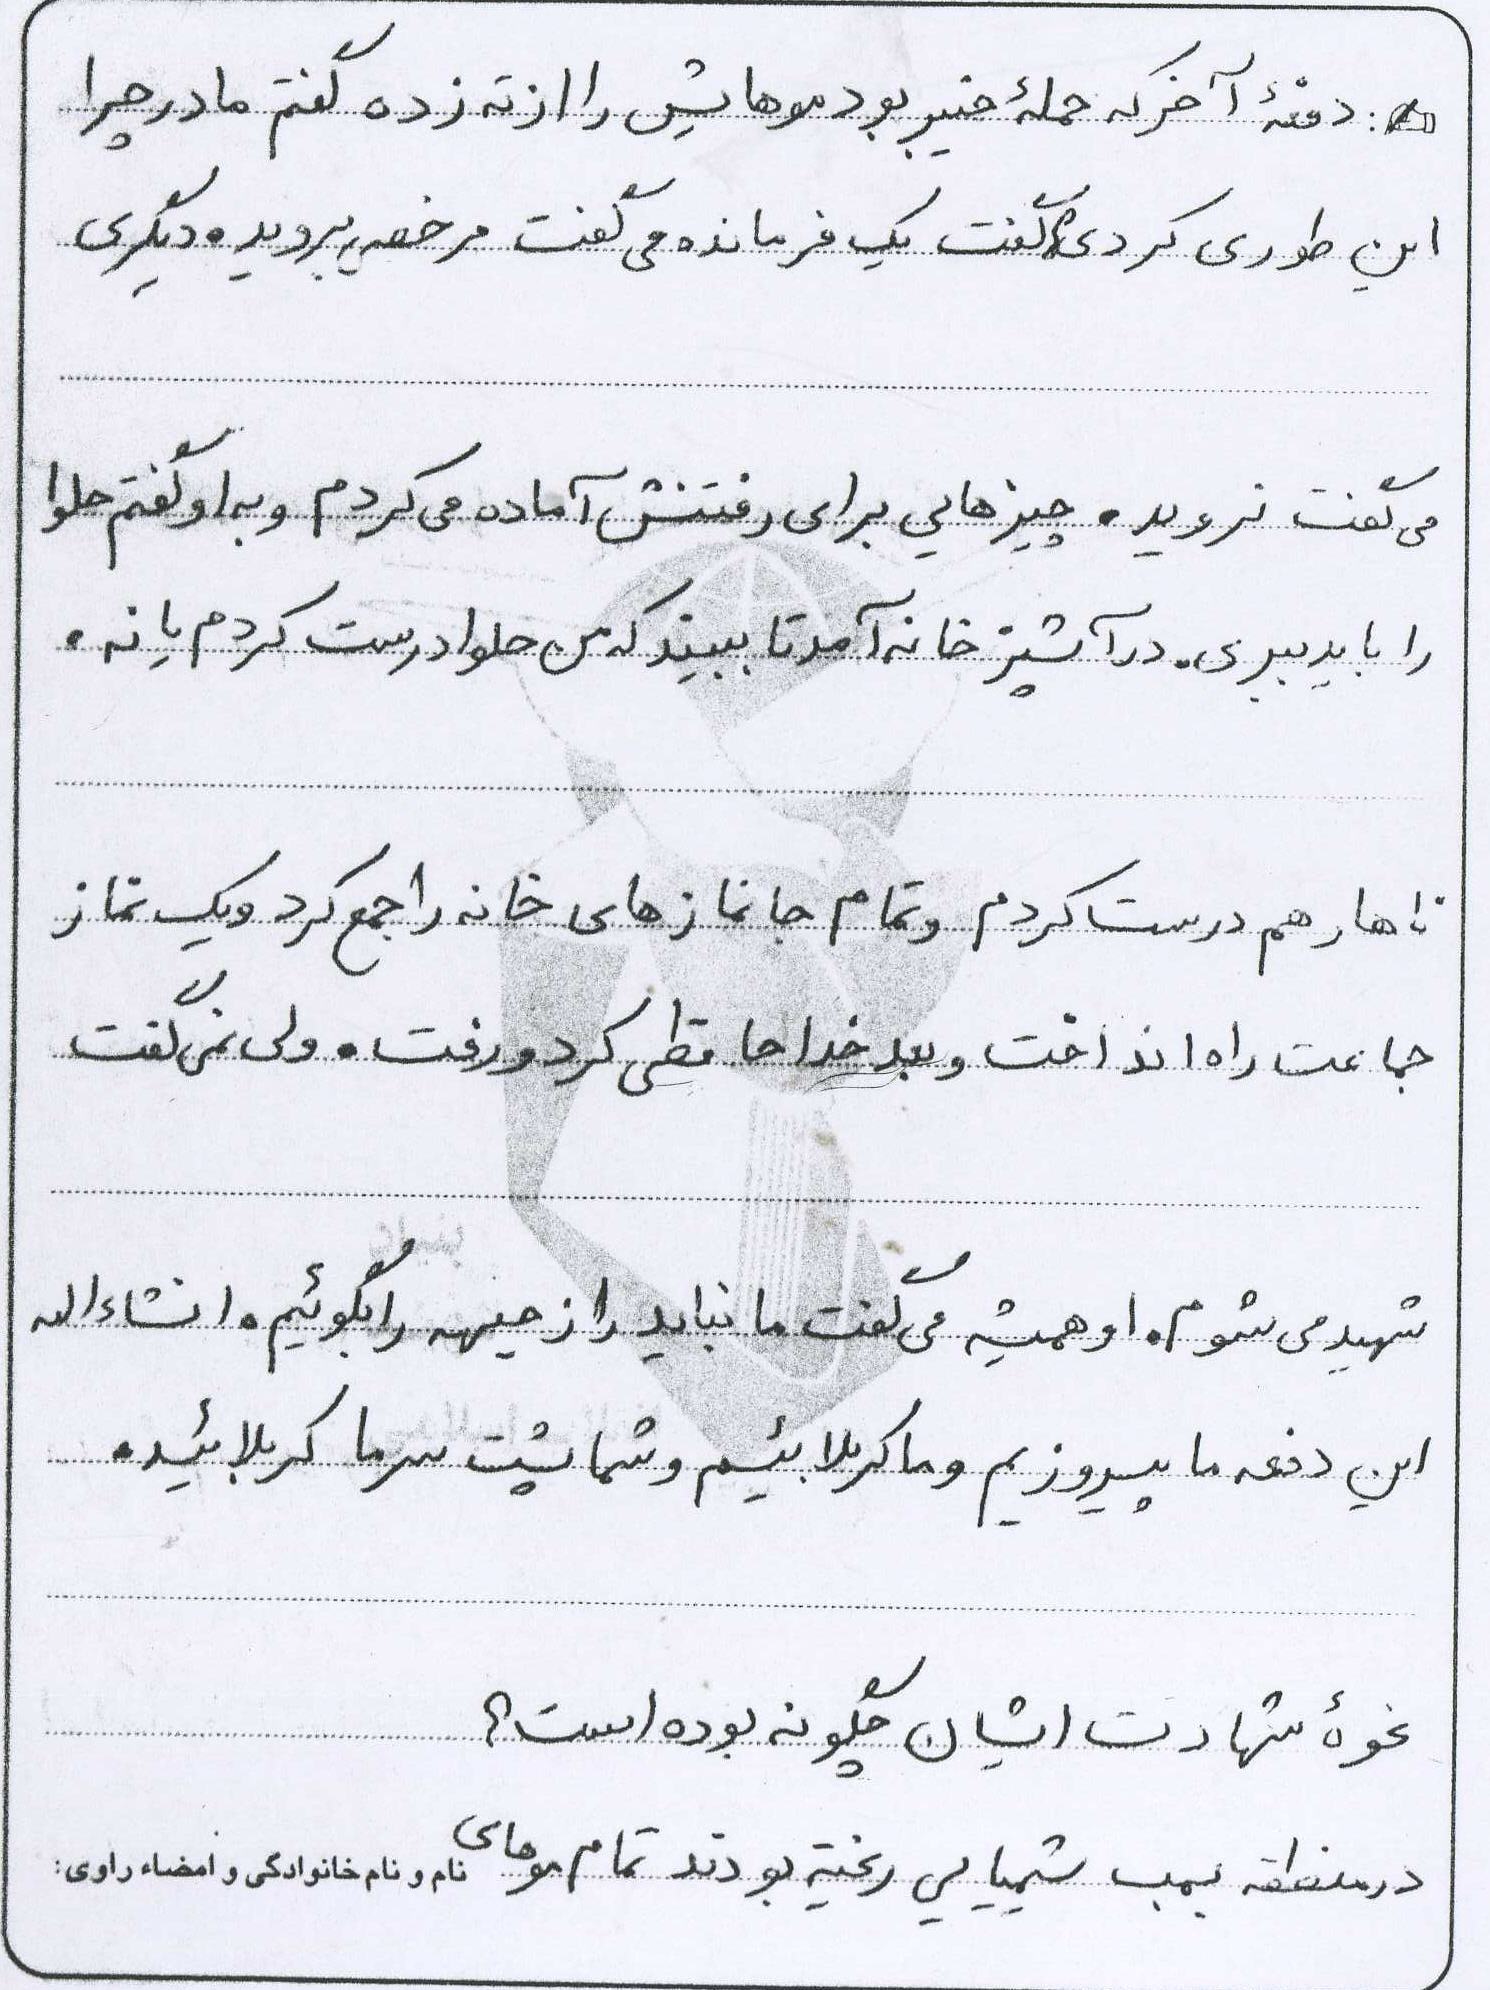 دفعهٔ آخر که حملهٔ خیبر بود موهایش را از ته زده گفتم مادر چرا
این طوری کردی؟ گفت یک فرمانده می گفت مرخصی بروید. دیگری
می گفت نروید. چیزهایی برای رفتنش آماده می کردم و به او گفتم حلوا
را باید ببری. در آشپزخانه آمد تا ببیند که من حلوا درست کردم یا نه.
ناهار هم درست کردم و تمام جانمازهای خانه را جمع کرد و یک نماز
جماعت راه انداخت و بعد خداحافظی کرد و رفت. ولی نمی گفت
شهید می شوم. او همیشه می گفت ما نباید راز جبهه را بگوئیم. انشاءالله
این دفعه ما پیروزیم و ما کربلا بئیم و شما پشت سر ما کربلا بئید.
نحوهٔ شهادت ایشان چگونه بوده است؟
در منطقه بمب شیمیایی ریخته بودند تمام موهای
نام و نام خانوادگی و امضاء راوی: